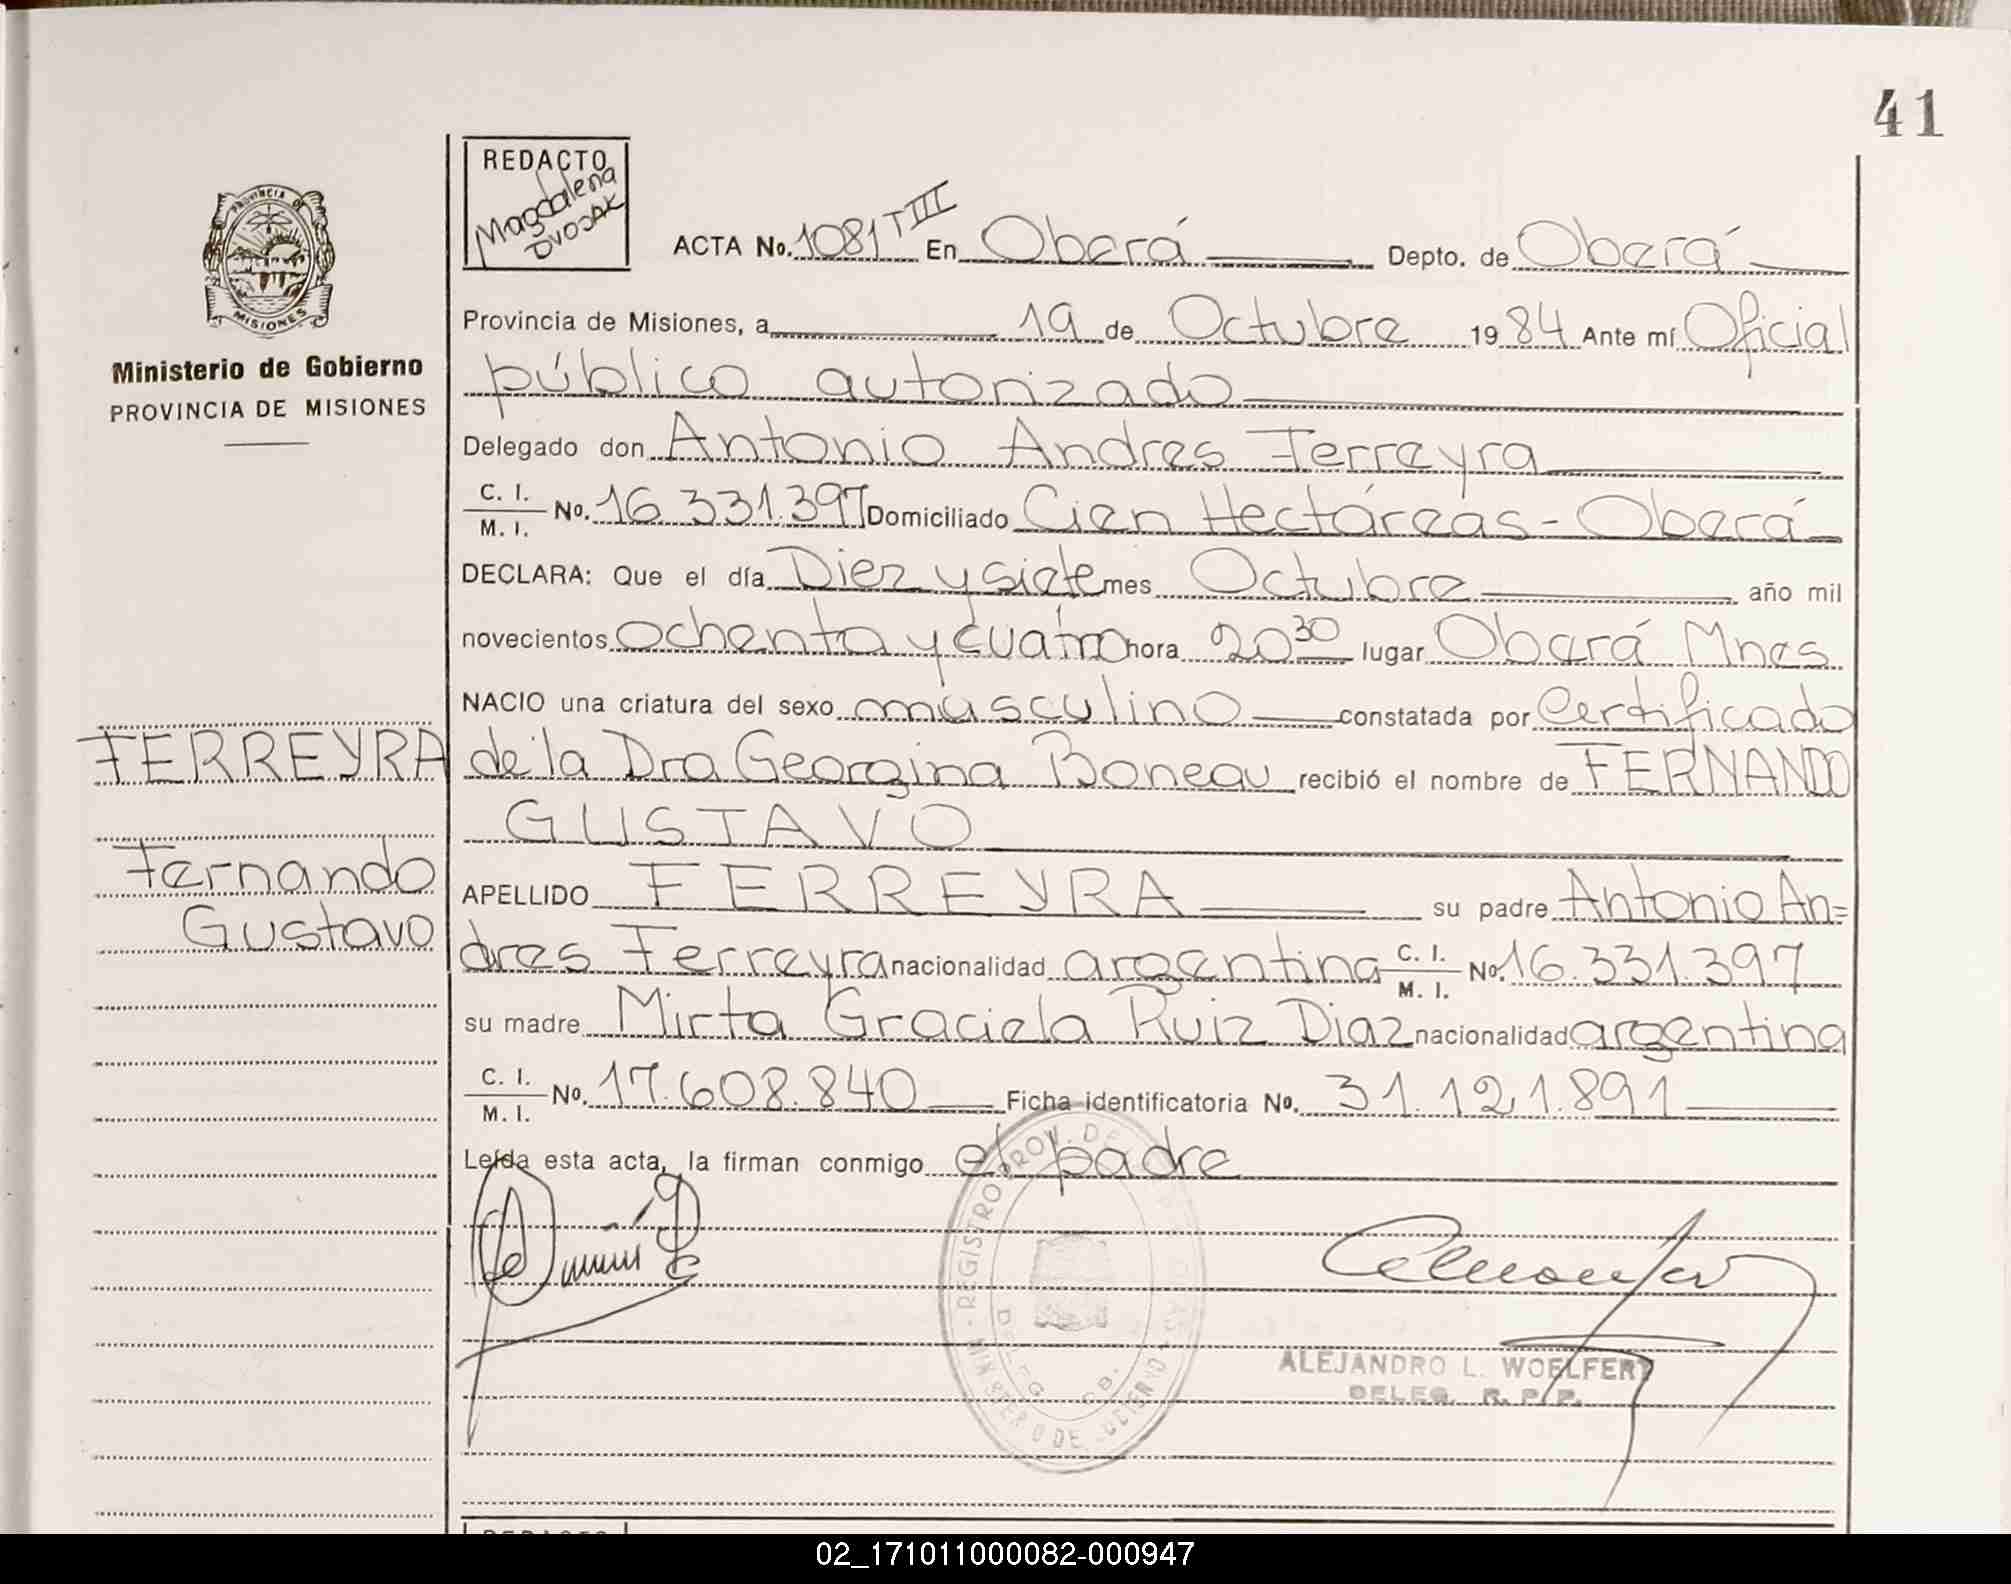 41
REDACTO
Magdalena
DVOJAK
PROVINCIA DE
MISIONES
Ministerio de Gobierno
PROVINCIA DE MISIONES
ACTA No. 1081 T III En Oberá Depto. de Oberá
Provincia de Misiones, a 19 de Octubre 1984 Ante mí Oficial
público autorizado
Delegado don Antonio Andres Ferreyra
C. I.
M. I. No. 16 331.397 Domiciliado Cien Hectáreas - Oberá
DECLARA: Que el día Diez y siete mes Octubre año mil
novecientos ochenta y cuatro hora 20 30 lugar Oberá Mnes
NACIO una criatura del sexo masculino constatada por Certificado
de la Dra Georgina Boneau recibió el nombre de FERNANDO
GUSTAVO
APELLIDO FERREYRA su padre Antonio An=
dres Ferreyra nacionalidad argentina C. I. M. I. No. 16.331.397
su madre Mirta Graciela Ruiz Diaz nacionalidad argentina
C. I.
M. I. No. 17.608.840 Ficha identificatoria No. 31.121.891
Leída esta acta, la firman conmigo el padre
FERREYRA
Fernando
Gustavo
REGISTRO PROV. DE
ALEJANDRO L. WOELFERT
DELEG. R. P. P.
02_171011000082-000947